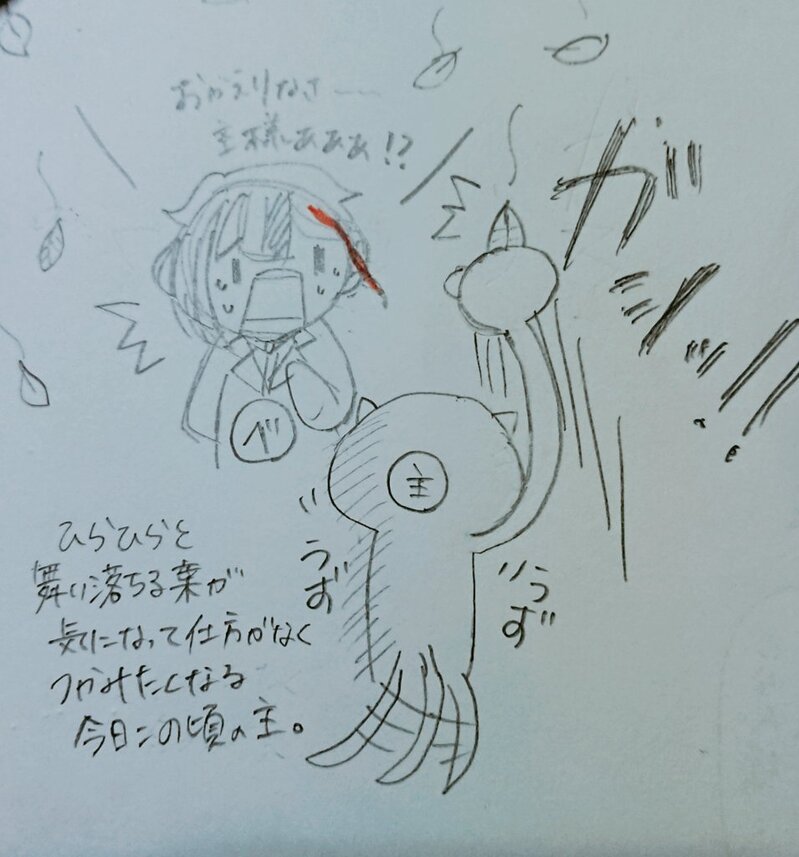 おかえりなさ——
主様ぁぁぁ!?
ガシッ!!
ベ
主
うず
うず
ひらひらと
舞い落ちる葉が
気になって仕方がなく
つかみたくなる
今日この頃の主。